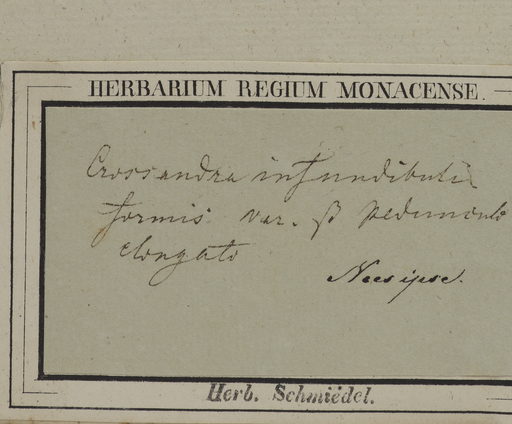 HERBARIUM REGIUM MONACENSE.
Crossandra infundibuli
formis var. β pedunculo
elongato
Nees ipse.
Herb. Schmiëdel.